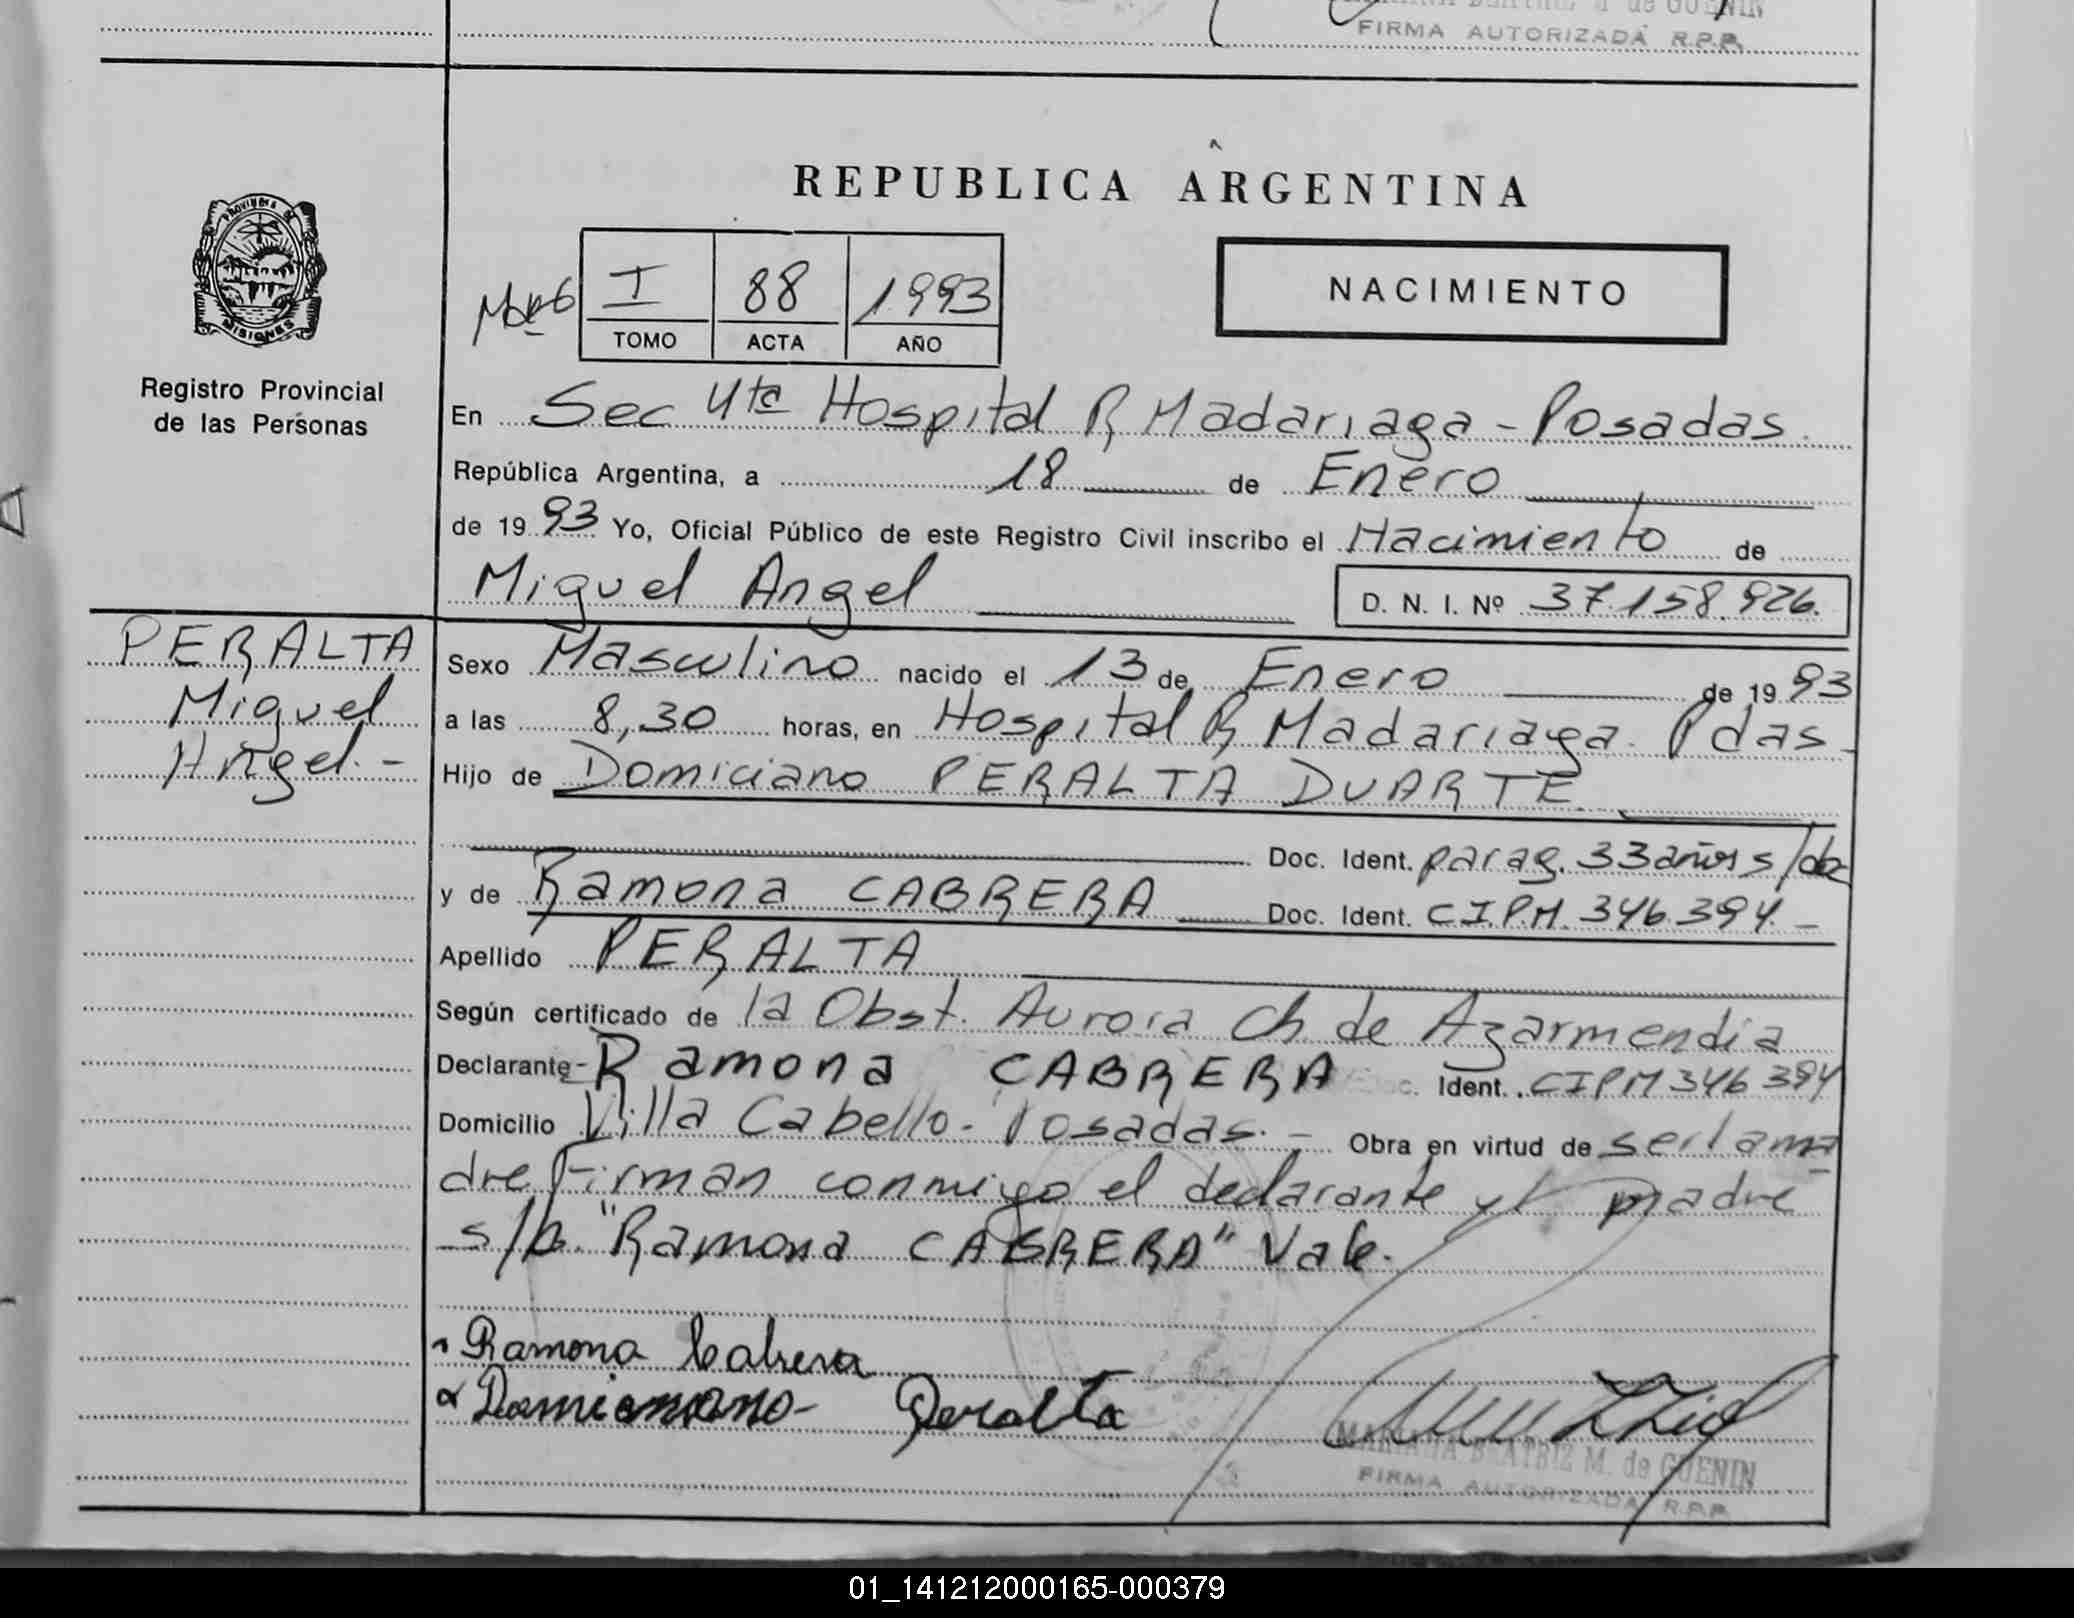 FIRMA AUTORIZADA R.P.P.
REPUBLICA ARGENTINA
PROVINCIA DE
MISIONES
Registro Provincial
de las Personas
I 88 1993
TOMO ACTA AÑO
NACIMIENTO
En Sec 4ta Hospital R Madariaga - Posadas.
República Argentina, a 18 de Enero
de 1993 Yo, Oficial Público de este Registro Civil inscribo el Nacimiento de
Miguel Angel D. N. I. Nº 37.158.926.
PERALTA
Miguel
Angel. -
Sexo Masculino nacido el 13 de Enero de 1993
a las 8,30 horas, en Hospital R Madariaga. Pdas -
Hijo de Domiciano PERALTA DUARTE
Doc. Ident. parag. 33 años s/doc
y de Ramona CABRERA Doc. Ident. C.I.P.M. 346.394. -
Apellido PERALTA
Según certificado de la Obst. Aurora Ch de Azarmendia
Declarante - Ramona CABRERA Ident. CIPM 346 394
Domicilio Villa Cabello - Posadas. - Obra en virtud de ser la ma
dre Firman conmigo el declarante y madre
s/b. "Ramona CABRERA" Vale.
Ramona Cabrera
Peralta
MARIANA BEATRIZ M. de GUENIN
FIRMA AUTORIZADA R.P.P.
01_141212000165-000379